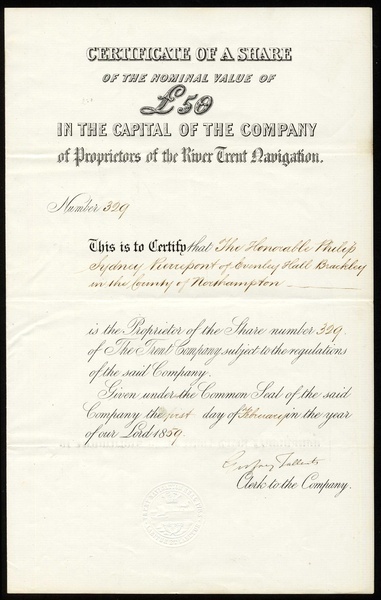 CERTIFICATE OF A SHARE
OF THE NOMINAL VALUE OF
£50
IN THE CAPITAL OF THE COMPANY
of Proprietors of the River Trent Navigation.
Number 329
This is to Certify that The Honorable Philip
Sydney Pierrepont of Evenley Hall Brackley
in the County of Northampton
is the Proprietor of the Share number 329.
of The Trent Company subject to the regulations
of the said Company.
Given under the Common Seal of the said
Company the first day of February in the year
of our Lord 1859.
Godfrey Tallents
Clerk to the Company.